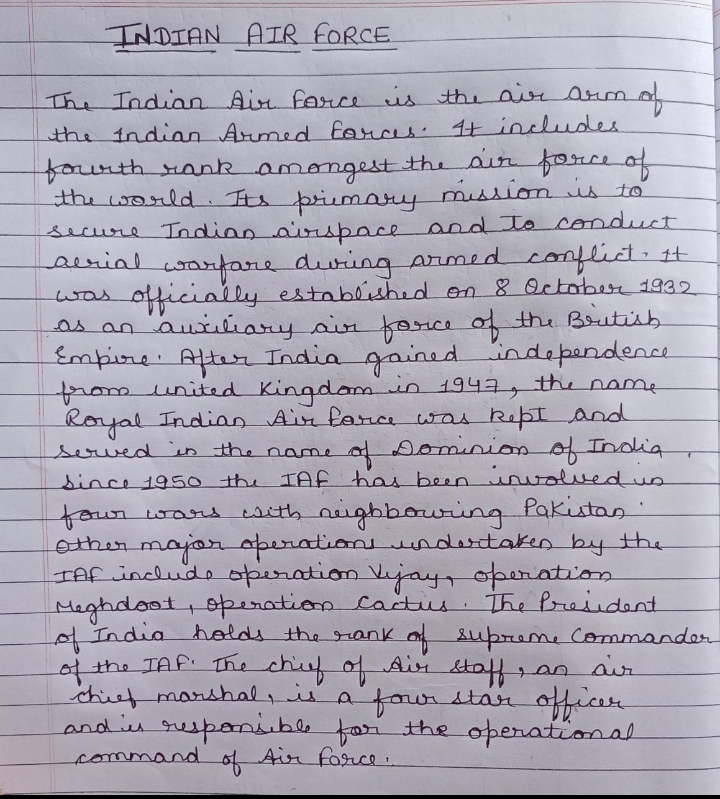 INDIAN AIR FORCE
The Indian Air Force is the air arm of
the Indian Armed Forces. It includes
fourth rank amongest the air force of
the world. Its primary mission is to
secure Indian airspace and to conduct
aerial warfare during armed conflict. It
was officially established on 8 October 1932
as an auxiliary air force of the British
Empire. After India gained independence
from united Kingdom in 1947, the name
Royal Indian Air Force was kept and
served in the name of Dominion of India.
Since 1950 the IAF has been involved in
four wars with neighbouring Pakistan.
Other major operations undertaken by the
IAF include operation Vijay, operation
Meghdoot, operation Cactus. The President
of India holds the rank of supreme Commander
of the IAF. The chief of Air staff, an air
chief marshal, is a four star officer
and is responsible for the operational
command of Air Force.